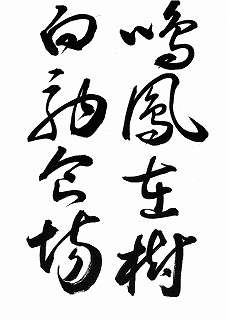 鳴鳳在樹
白駒食場